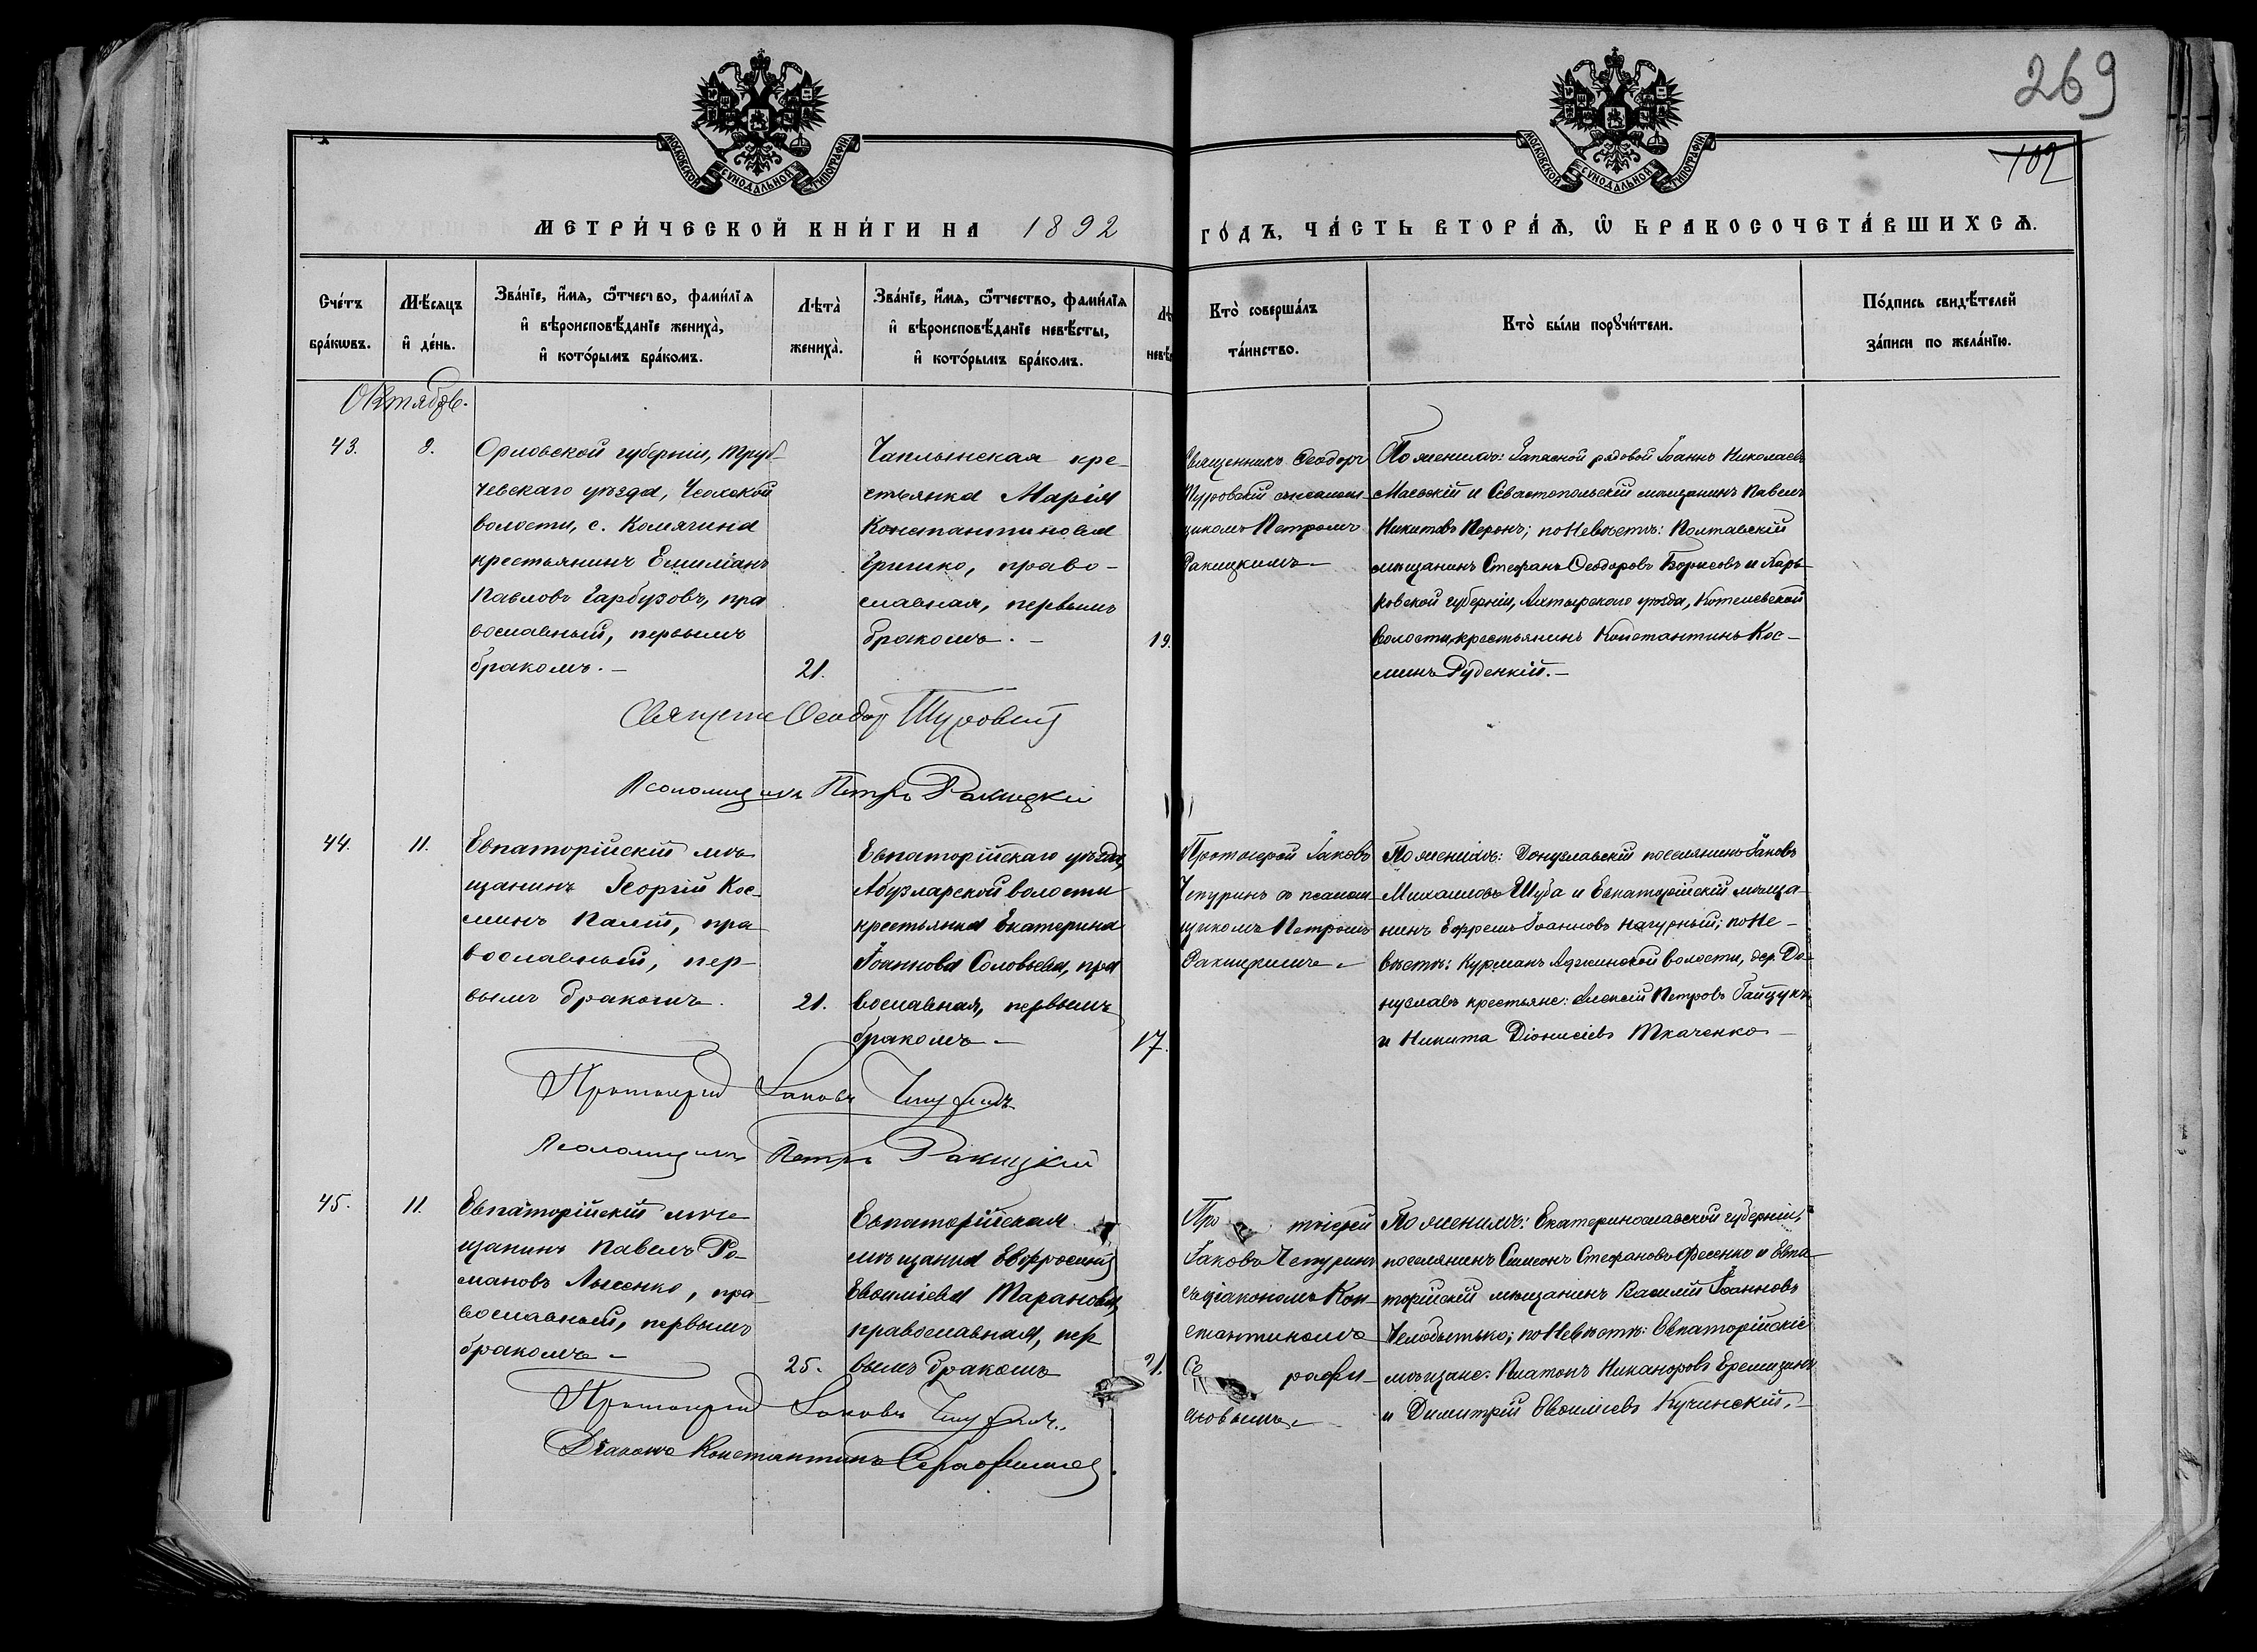 269
102
МОСКОВСКОЙ СѴНОДАЛЬНОЙ ТИПОГРАФІИ
МОСКОВСКОЙ СѴНОДАЛЬНОЙ ТИПОГРАФІИ
МЕТРИ́ЧЕСКОЙ КНИ́ГИ НА 1892
ГО́ДЪ, ЧА́СТЬ ВТОРА́Ѧ, Ѽ БРАКОСОЧЕТА́ВШИХСѦ.
Сче́тъ бра́кѡвъ.
Мѣ́сѧцъ и҆ де́нь.
Зва́нїе, и҆́мѧ, ѻ҆́тчество, фамѝлїѧ
и҆ вѣроисповѣ́данїе жениха̀,
и҆ кото́рымъ бра́комъ.
Лѣта̀ жениха̀.
Зва́нїе, и҆́мѧ, ѻ҆́тчество, фамѝлїѧ
и҆ вѣроисповѣ́данїе невѣ́сты,
и҆ кото́рымъ бра́комъ.
Кто̀ соверша́лъ
та́инство.
Кто̀ бы́ли порꙋчи́тели.
По́дпись свидѣ́телей
за́писи по жела́нїю.
Октябрь.
43.
8.
Орловской губерніи, Труб-
чевскаго уѣзда,
волости, с. Комягина
крестьянинъ Емиліанъ
Павловъ Гарбузовъ, пра
вославный, первымъ
бракомъ. —
21.
Чаплынская кре-
стьянка Марія
Константинова
Гришко, право-
славная, первымъ
бракомъ. —
19.
Священникъ Ѳеодоръ
Шуровскій съ псалом-
щикомъ Петромъ
Ракицкимъ —
По женихѣ: Запасной рядовой Іоаннъ Николаевъ
Маевскій и Севастопольскій мѣщанинъ Павелъ
Никитовъ Перонъ; по невѣстѣ: Полтавскій
мѣщанинъ Стефанъ Ѳеодоровъ Борисовъ и Харь-
ковской губерніи, Ахтырскаго уѣзда, Котелевской
волости, крестьянинъ Константинъ Кос-
минъ Руденкій. —
Священн Ѳеодоръ Шуровскій
Псаломщикъ Петръ Ракицкій
44.
11.
Евпаторійскій мѣ-
щанинъ Георгій Кос-
минъ Палій, пра
вославный, пер-
вымъ бракомъ.
21.
Евпаторійскаго уѣзда,
Абузларской волости
крестьянка Екатерина
Іоаннова Соловьева, пра
вославная, первымъ
бракомъ —
17.
Протоіерей Іаковъ
Чепуринъ съ псалом-
щикомъ Петромъ
Ракицкимъ —
По женихѣ: Донузлавскій поселянинъ Іаковъ
Михаиловъ Шуба и Евпаторійскій мѣща-
нинъ Ефремъ Іоанновъ Нагурный; по не-
вѣстѣ: Курманъ Аджинской волости, дер. До-
нузлавъ крестьяне: Алексій Петровъ Гайдукъ
и Никита Діонисіевъ Ткаченко —
Протоіерей Іаковъ Чепуринъ
Псаломщикъ Петръ Ракицкій
45.
11.
Евпаторійскій мѣ-
щанинъ Павелъ Ро-
мановъ Лысенко, пра-
вославный, первымъ
бракомъ —
25.
Евпаторійская
мѣщанка Евфросинія
Евѳиміева Таранова,
православная, пер
вымъ бракомъ
21.
Протоіерей
Іаковъ Чепуринъ
съ діакономъ Кон-
стантиномъ
Серафи-
мовымъ —
По женихѣ: Екатеринославской губерніи,
поселянинъ Симеонъ Стефановъ Фесенко и Евпа-
торійскій мѣщанинъ Василій Іоанновъ
Челобытько; по невѣстѣ: Евпаторійскіе
мѣщане: Платонъ Никаноровъ Еремизинъ
и Димитрій Евѳиміевъ Кучинскій. —
Протоіерей Іаковъ Чепуринъ
Діаконъ Константинъ Серафимовъ